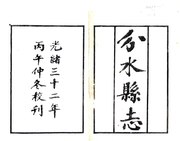 分水縣志
光緒三十二年
丙午仲冬校刊